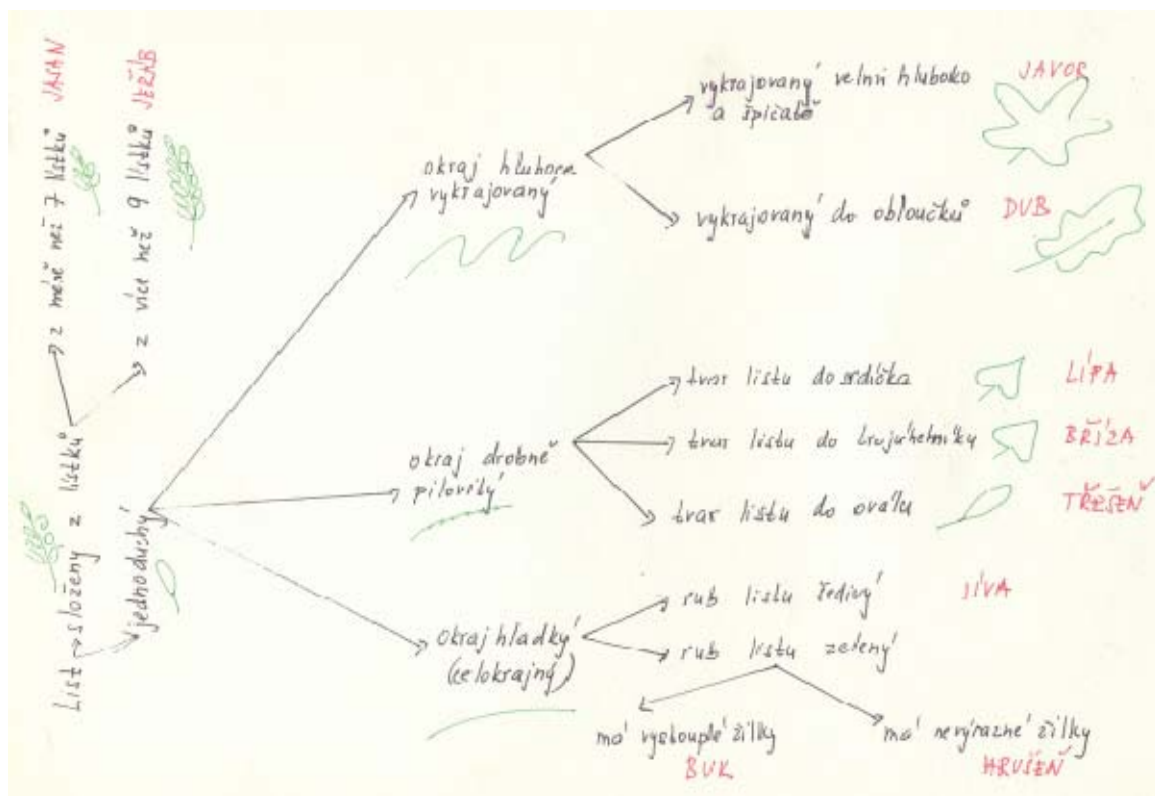 List → složeny z lístků
→ jednoduchý
→ z méně než 7 lístků JASAN
→ z více než 9 lístků JEŘÁB
okraj hluboce
vykrajovaný
vykrajovaný velmi hluboko
a špičatě
JAVOR
vykrajovaný do obloučků DUB
okraj drobně
pilovitý
tvar listu do srdíčka LÍPA
tvar listu do trojúhelníku BŘÍZA
tvar listu do oválu TŘEŠEŇ
okraj hladký
(celokrajný)
rub listu šedivý JÍVA
rub listu zelený
má vystouplé žilky
BUK
má nevýrazné žilky
HRUŠEŇ